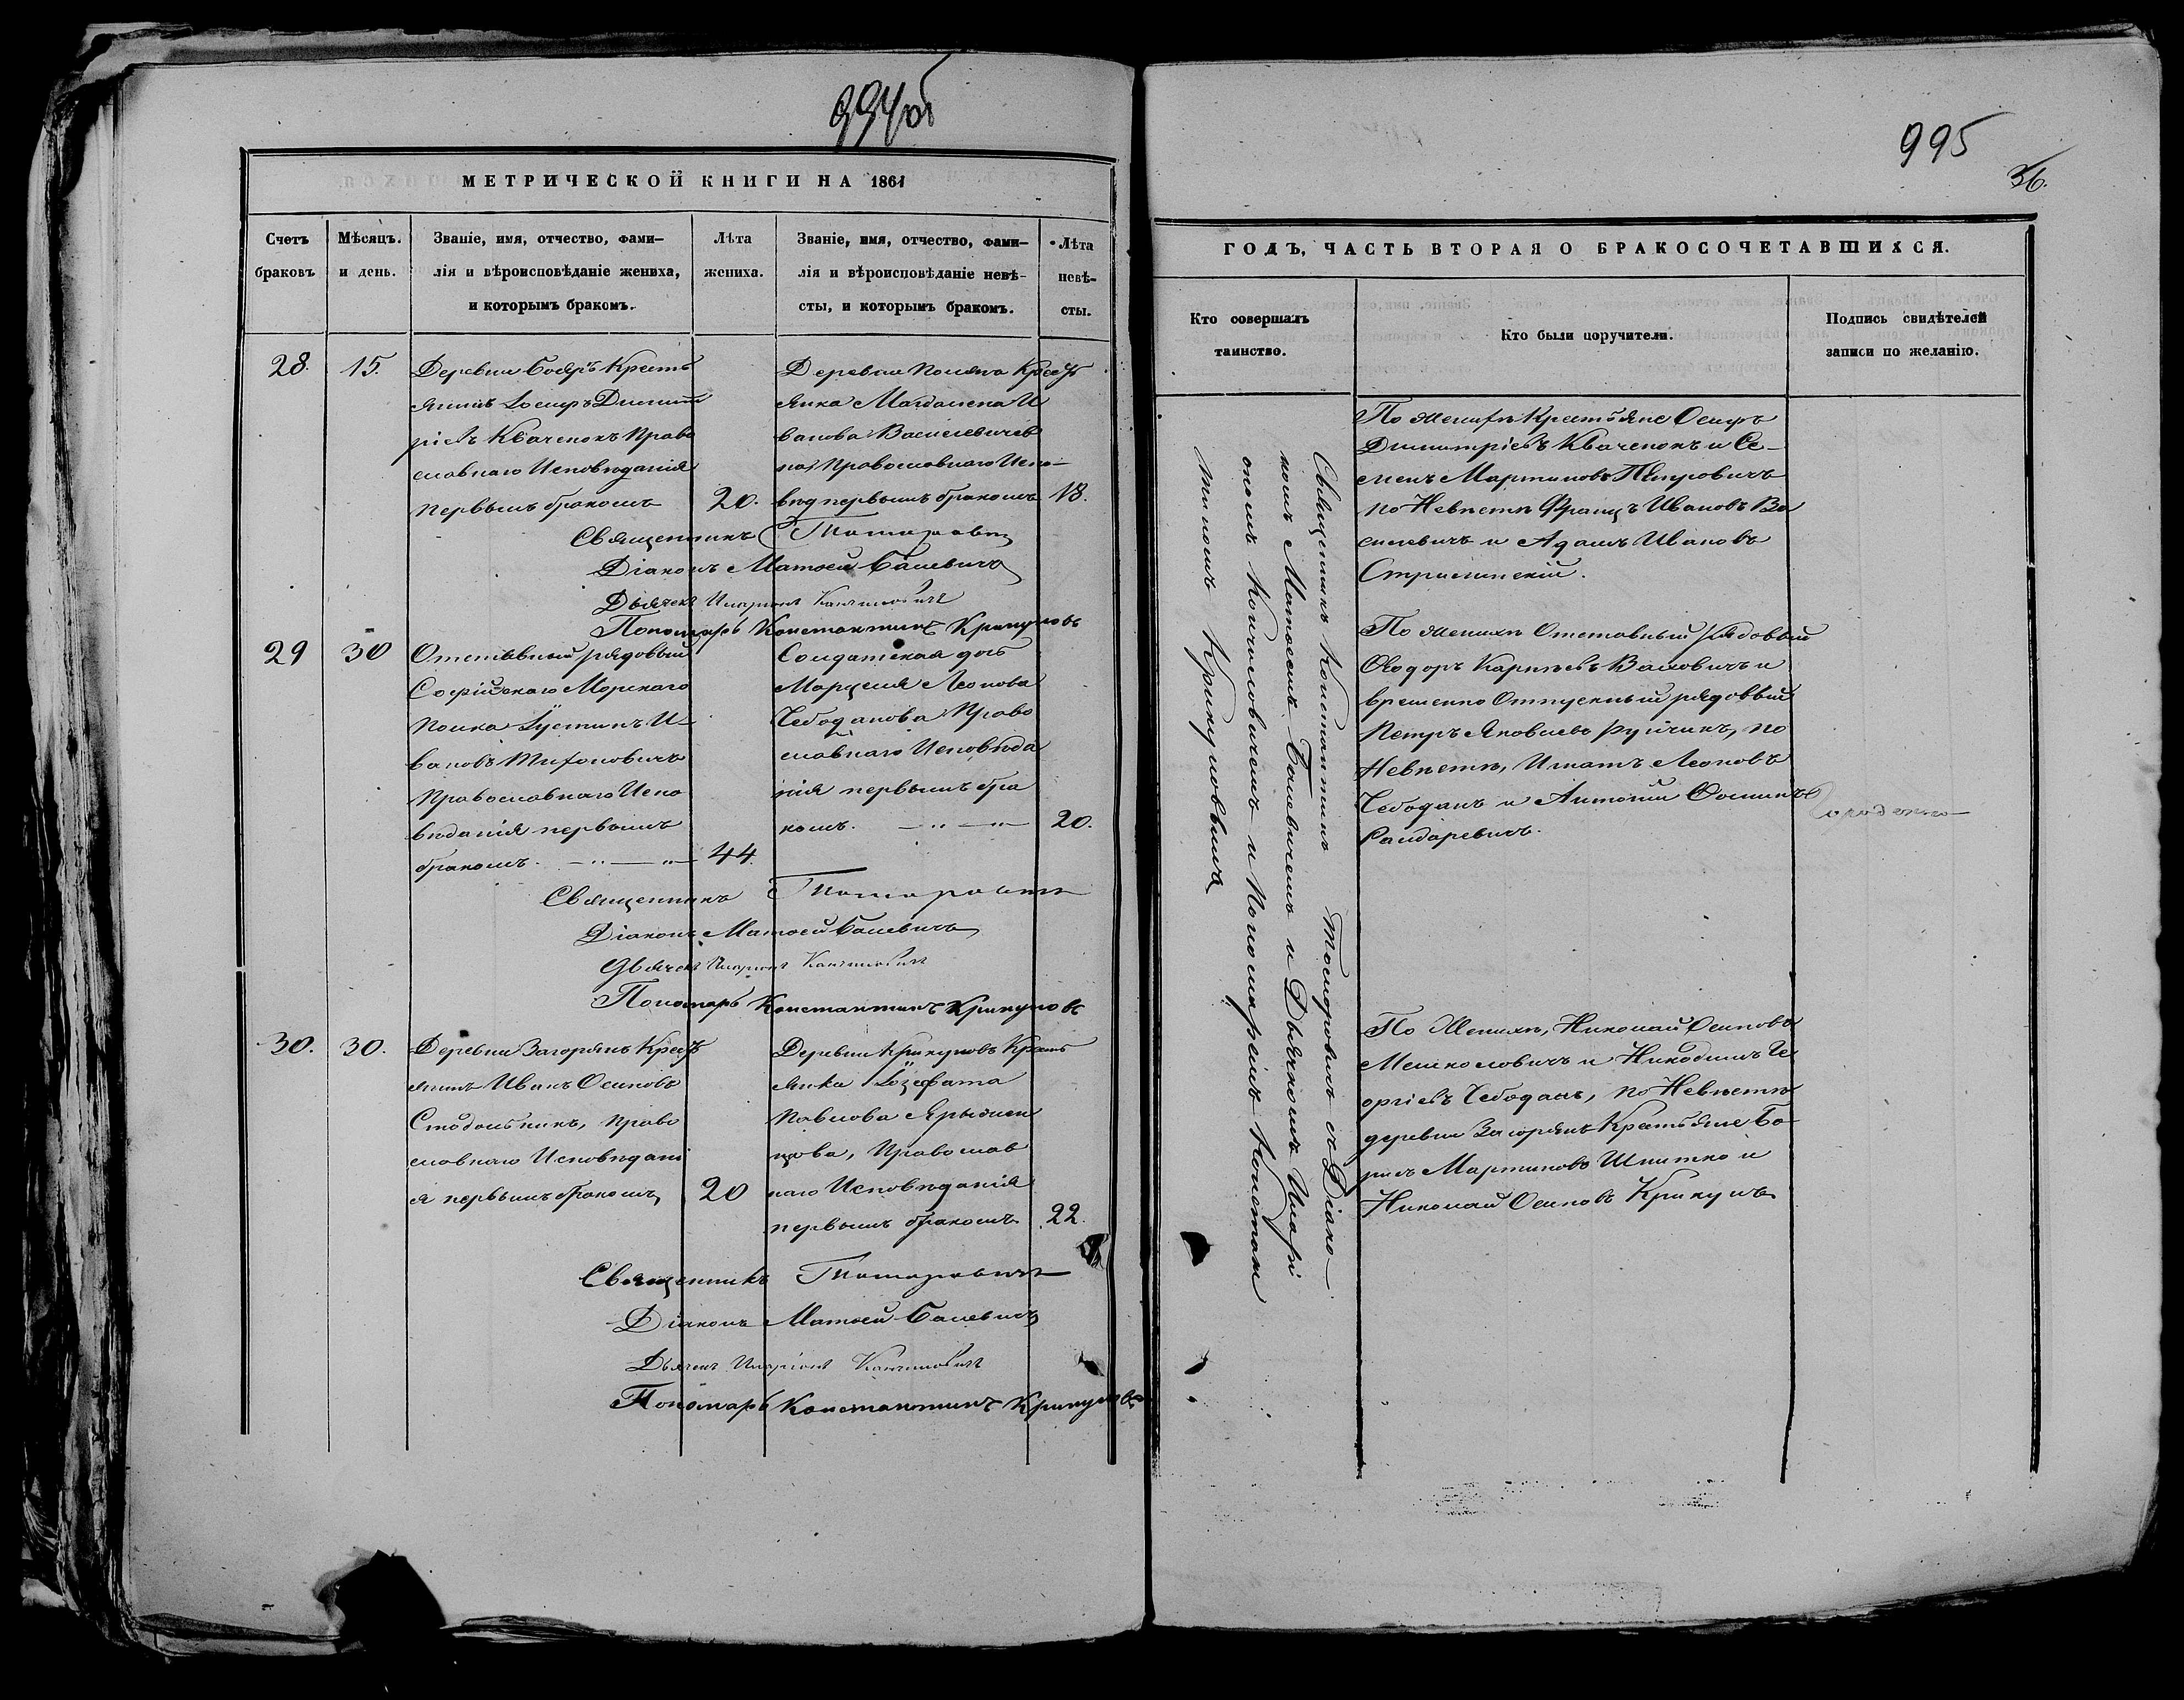 994об
МЕТРИЧЕСКОЙ КНИГИ НА 1861
Счетъ
браковъ
Мѣсяцъ.
и день.
Званіе, имя, отчество, фами-
лія и вѣроисповѣданіе жениха,
и которымъ бракомъ.
Лѣта
жениха.
Званіе, имя, отчество, фами-
лія и вѣроисповѣданіе невѣ-
сты, и которымъ бракомъ.
Лѣта
невѣ-
сты.
28. 15.
Деревни Бояръ Кресть
янинъ Іосифъ Димит
ріевъ Кваченокъ Право
славнаго Исповѣданія
первымъ бракомъ 20.
Деревни Поляна Кресть
янка Магдалена И
ванова Василевичев
на, Православнаго Испо-
вѣд первымъ бракомъ 18.
Священникъ Томаровичъ
Діаконъ Матѳей Балевичъ
Дьячекъ Иларіонъ
Пономарь Константинъ Крикуновъ
29 30
Отставный рядовый
Софійскаго Морскаго
полка Іустинъ И
вановъ Тихоновичъ
Православнаго Испо
вѣданія первымъ
бракомъ. — „ — „ — 44.
Солдатская дочь
Марцеля Леонова
Чебоданова Право
славнаго Исповѣда
нія первымъ бра
комъ. — „ — 20.
Священникъ Томаровичъ
Діаконъ Матѳей Балевичъ
Дьячекъ Иларіонъ
Пономарь Константинъ Крикуновъ
30. 30.
Деревни Загорянъ Кресть
янинъ Иванъ Осиповъ
Стодольникъ, Право
славнаго Исповѣдані
я первымъ бракомъ 20
Деревни Крикуновъ Кресть
янка Іозефата
Павлова
цова, Православ
наго Исповѣданія
первымъ бракомъ. 22.
Священникъ Томаровичъ
Діаконъ Матѳей Балевичъ
Дьячекъ Иларіонъ
Пономарь Константинъ Крикуновъ
995
36.
ГОДЪ, ЧАСТЬ ВТОРАЯ О БРАКОСОЧЕТАВШИХСЯ.
Кто совершалъ
таинство.
Кто были поручители.
Подпись свидѣтелей
записи по желанію.
Священникъ Константинъ Томаровичъ съ Діако-
номъ Матѳеемъ Балевичемъ и Дьячкомъ Иларі
ономъ и Пономаремъ Констан
тиномъ Крикуновымъ
По женихѣ Крестьяне Осипъ
Димитріевъ Кваченокъ и Се-
менъ Мартиновъ Петровичъ
по Невѣстѣ Францъ Ивановъ Ва
силевичъ и Адамъ Ивановъ
По женихѣ Отставный рядовый
Ѳеодоръ Карповъ Васковичъ и
временно Отпускный рядовый
Петръ Яковлевъ по
Невѣстѣ, Игнатъ Леоновъ
Чебоданъ и Антоній Ѳоминъ
Рандаревичъ.
По Женихѣ, Николай Осиповъ
и Никодимъ Ге
оргіевъ Чебоданъ, по Невѣстѣ
деревни Загорянъ Крестьяне Бо
рисъ Мартиновъ Шпитко и
Николай Осиповъ Крикунъ